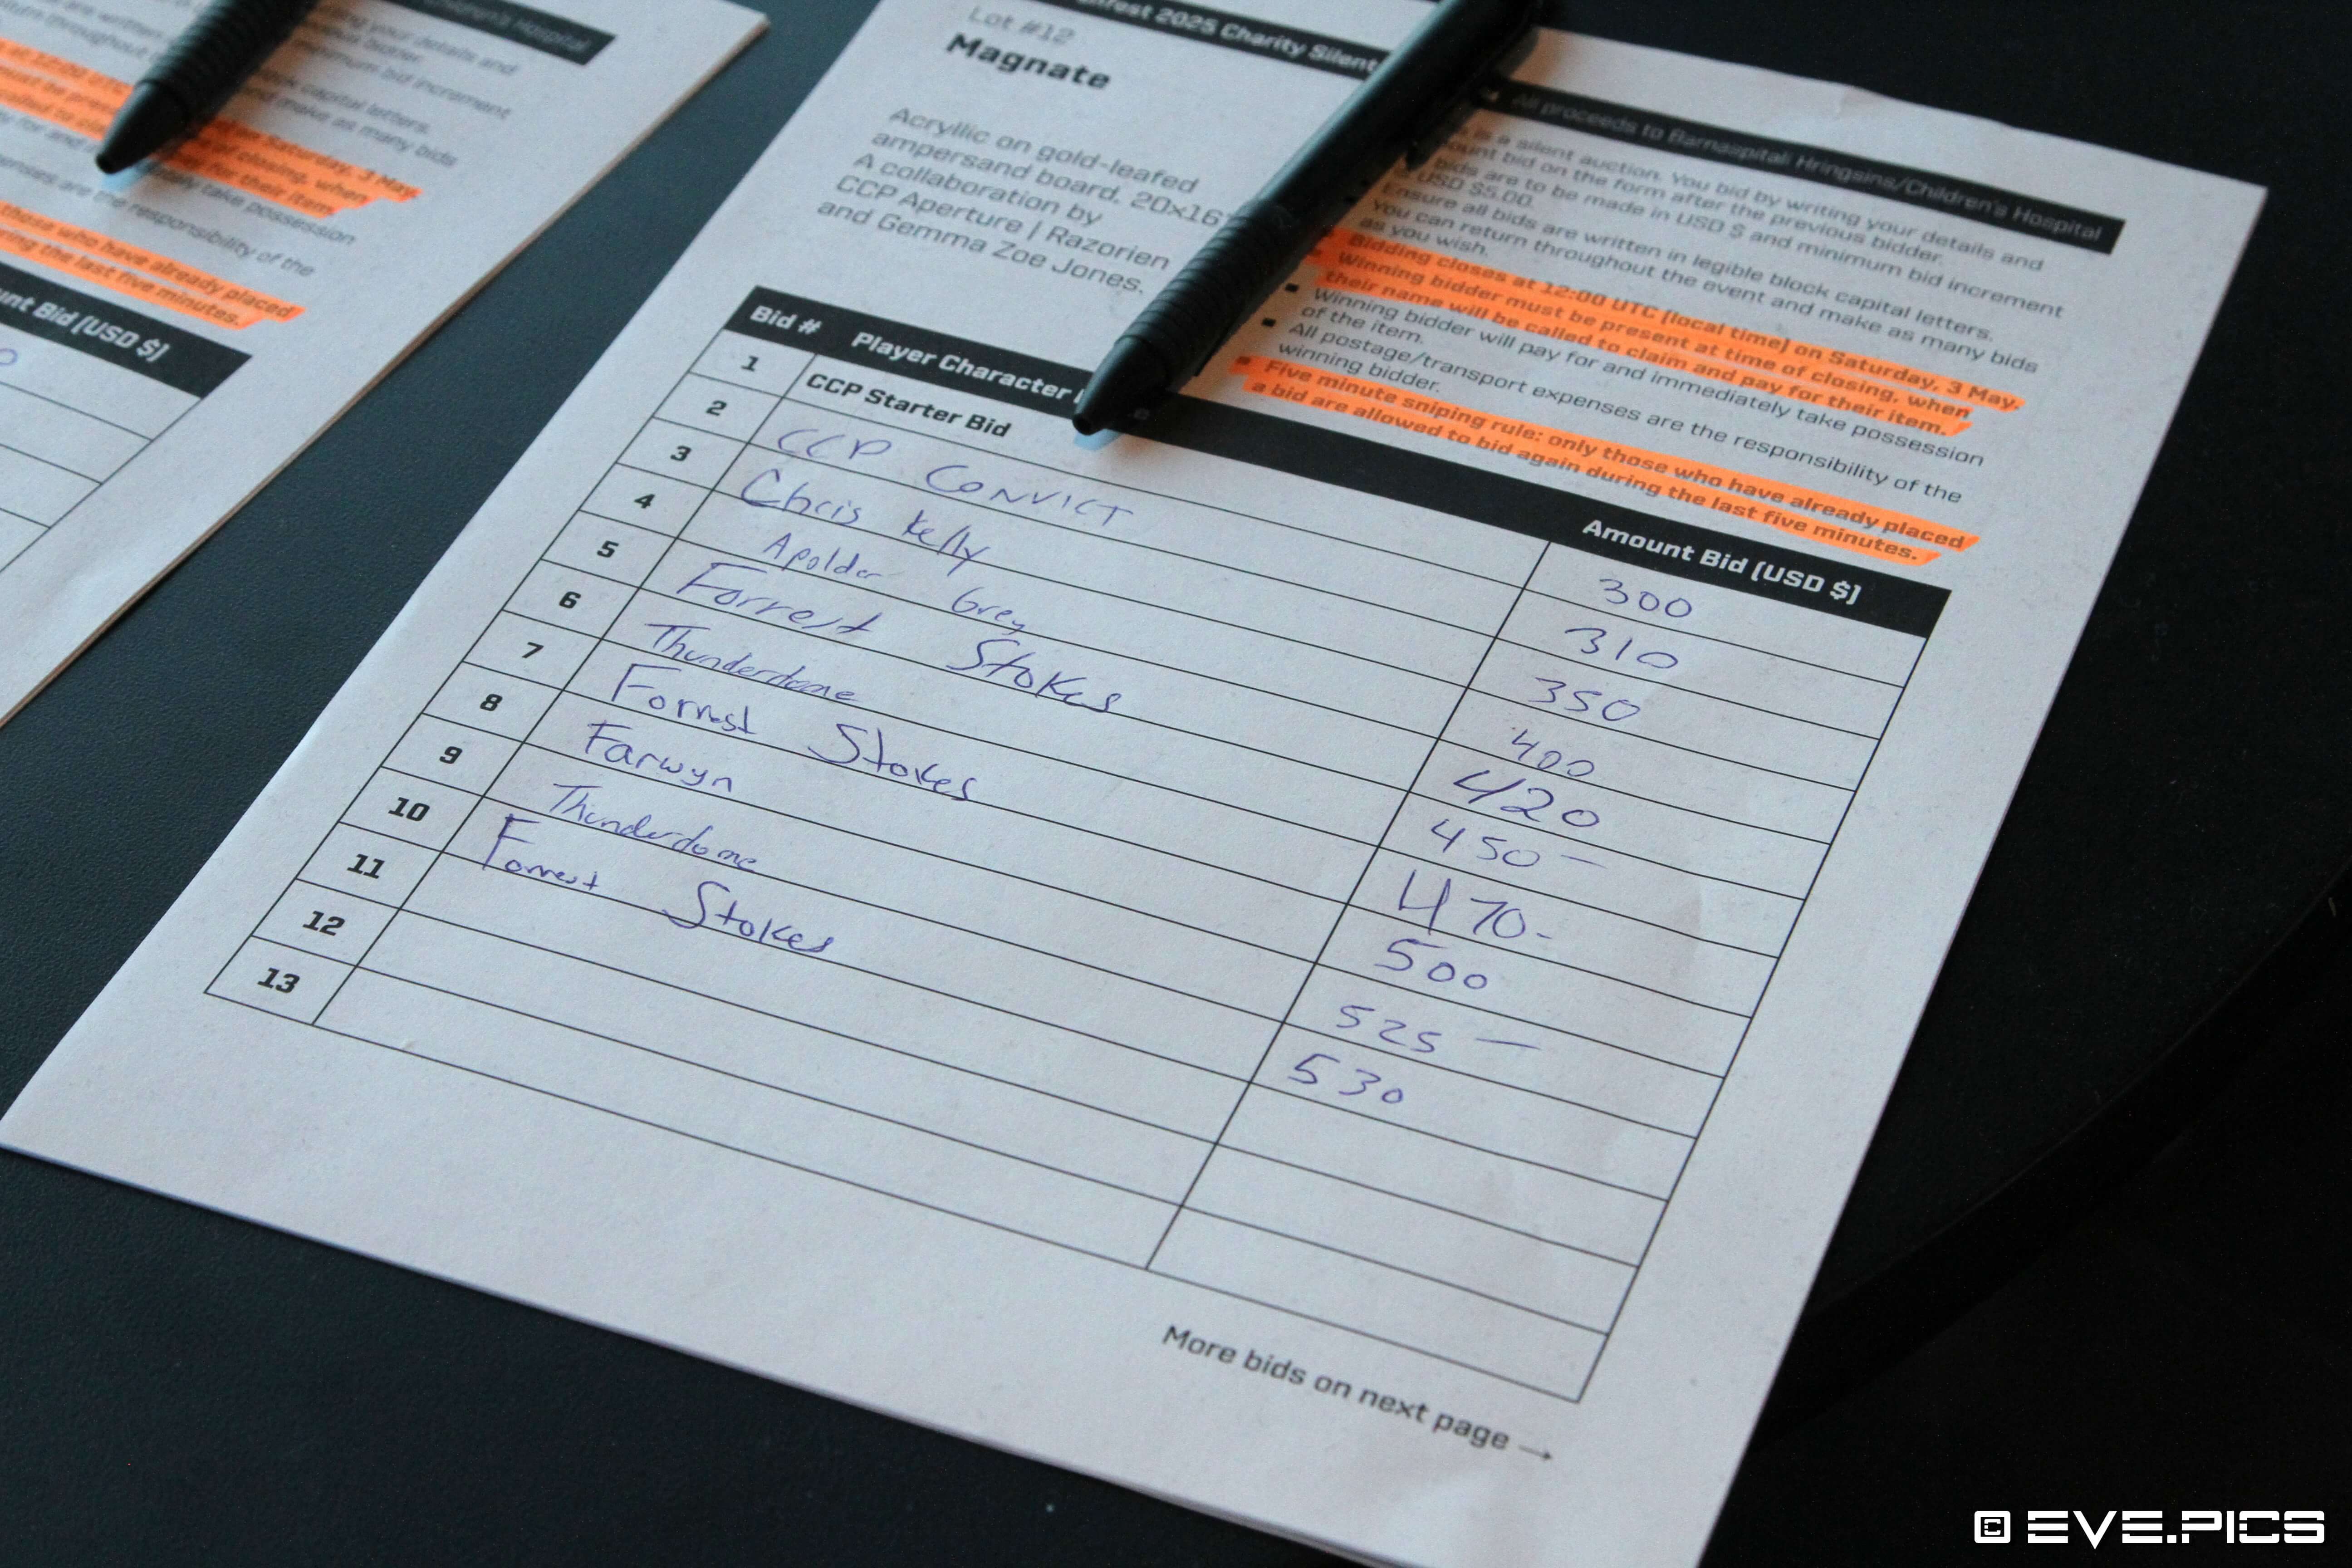 Children's Hospital
your details and
minimum bid increment
capital letters.
make as many bids
on Saturday, 3 May.
of closing, when
for their item.
take possession
the responsibility of the
those who have already placed
the last five minutes.
Bid (USD $)
2025 Charity Silent
Lot #12
Magnate
Acryllic on gold-leafed
ampersand board, 20x16"
A collaboration by
CCP Aperture | Razorien
and Gemma Zoe Jones.
All proceeds to Barnaspitali Hringsins/Children's Hospital
is a silent auction. You bid by writing your details and
bid on the form after the previous bidder.
bids are to be made in USD $ and minimum bid increment
USD $5.00.
Ensure all bids are written in legible block capital letters.
You can return throughout the event and make as many bids
as you wish.
Bidding closes at 12:00 UTC (local time) on Saturday, 3 May.
Winning bidder must be present at time of closing, when
their name will be called to claim and pay for their item.
Winning bidder will pay for and immediately take possession
of the item.
All postage/transport expenses are the responsibility of the
winning bidder.
Five minute sniping rule: only those who have already placed
a bid are allowed to bid again during the last five minutes.
Bid # Player Character Amount Bid (USD $)
1 CCP Starter Bid 300
2 CCP CONVICT 310
3 Chris Kelly 350
4 Apolder Grey 400
5 Forrest Stokes 420
6 Thunderdome 450 —
7 Forrest Stokes 470-
8 Farwyn 500
9 Thunderdome 525 —
10 Forrest Stokes 530
11
12
13
More bids on next page →
© EVE.PICS